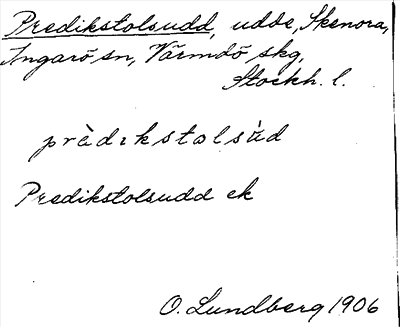 Predikstolsudd, udde, Skenora,
Ingarö sn, Värmdö skg,
Stockh. l.
prädıkstolsùd
Predikstolsudd ek
O. Lundberg 1906